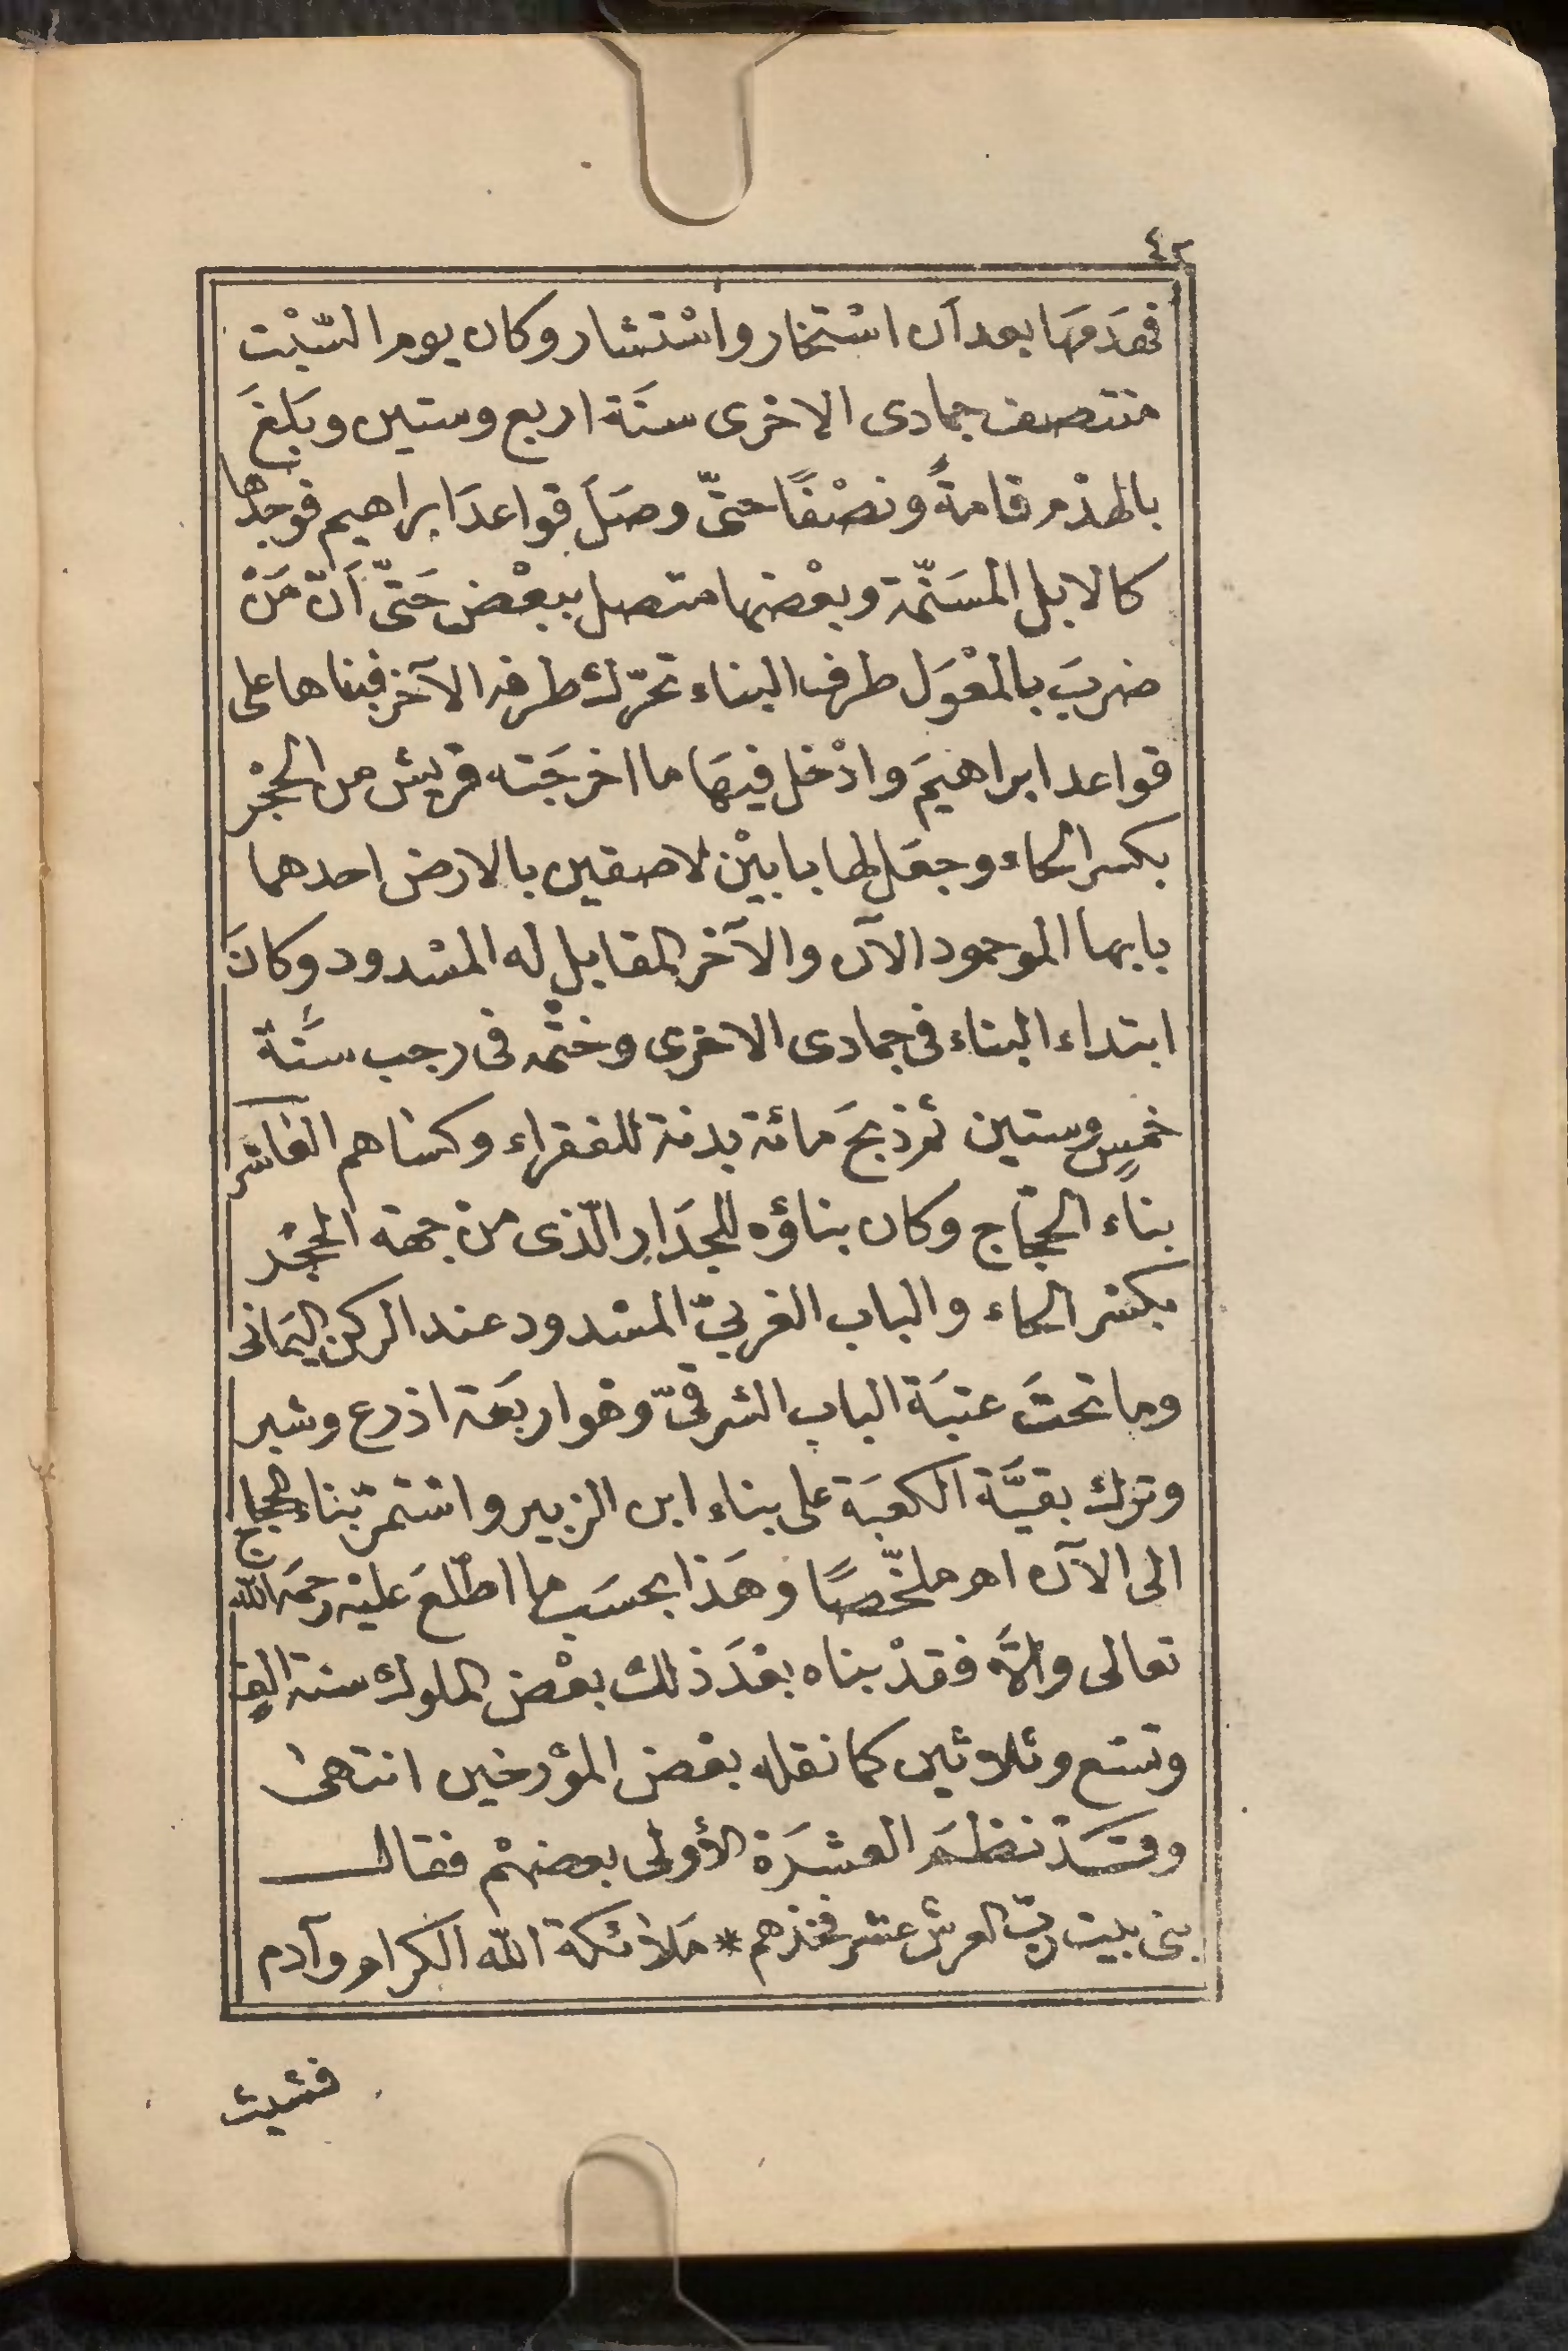 ٤٢
فهدَمَهَا بعد أن اسْتخار واسْتشار وكان يوم السّبْت
منتصف جمادى الاخرى سنَة اربع وستين وبَلغَ
بالهدْم قامةً ونصْفًا حتّى وصَلَ قواعدَ ابراهيم فوجدها
كالابل المسَنّمة وبعْضها متصل ببعْض حَتّى اَنّ مَنْ
ضربَ بالمعْوَل طرف البناء تحرّك طرفه الآخر فبناها على
قواعد ابراهيمَ وادْخل فيهَا ما اخرجَته قريش من الحجْر
بكسر الحاء وجعَل لها بابيْن لاصقين بالارض احدهما
بابها الموجود الآن والآخر المقابل له المسْدود وكانَ
ابتداء البناء فى جمادى الاخرى وختْمه فى رجب سنَة
خمسٍ وستين ثم ذبحَ مائة بدنة للفقراء وكساهم العاشر
بناء الحجّاج وكان بناؤه للجدَار الّذى منْ جهة الحجْر
بكسْر الحاء والباب الغربىّ المسْدود عند الركن اليمَانى
وما تحتَ عتبَة الباب الشرقىّ وهو اربَعة اذرع وشبر
وترك بقيَّة الكعبَة على بناء ابن الزبير واسْتمرّ بناء الحجاج
الى الآن اهـ ملخّصًا وهَذا بحسَب ما اطّلعَ عليْه رحمَه الله
تعالى والّا فقدْ بناه بعْدَ ذلك بعْض الملوك سنة الفٍ
وتسْع وثلاثين كما نقله بعْض المؤرخين انتهىٰ
وقَدْ نظمَ العشَرَة الأولى بعضهمْ فقالـ
بنى بيت ربّ العرش عشر فخذهم * مَلَائكة الله الكرام وآدم
فشيث